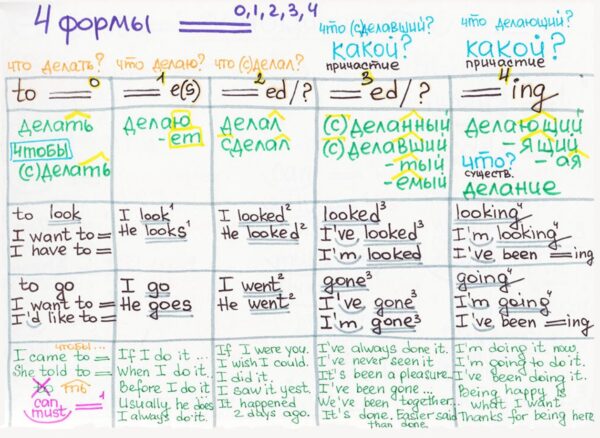 4 формы ═══ 0, 1, 2, 3, 4
что (с)делавший? что делающий?
какой? какой?
причастие причастие
что делать? что делаю? что (с)делал?
to ═══ 0 ═══ 1 e(s) ═══ 2 ed/? ═══ 3 ed/? ═══ 4 ing
делать
чтобы
(с)делать
делаю
-ет
делал
сделал
(с)деланный
(с)делавший
-тый
-емый
делающий
-ящий
-ая
что?
существ.
делание
to look
I want to =
I have to =
I look¹
He looks¹
I looked²
He looked²
looked³
I've looked³
I'm looked
looking⁴
I'm looking⁴
I've been =ing
to go
I want to =
I'd like to =
I go
He goes
I went²
He went²
gone³
I've gone³
I'm gone³
going⁴
I'm going⁴
I've been =ing
чтобы...
I came to =
She told to =
to ть
can
must =1
If I do it...
When I do it.
Before I do it
Usually he does
I always do it.
If I were you.
I wish I could.
I did it.
I saw it yest.
It happened
2 days ago.
I've always done it.
I've never seen it
It's been a pleasure.
I've been gone...
We've been together...
It's done. Easier said
than done.
I'm doing it now.
I'm going to do it.
I've been doing it.
Being happy is
what I want
Thanks for being here